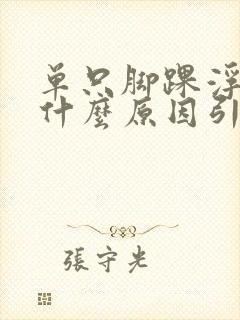 单只脚踝浮
什麼原因引
張守光